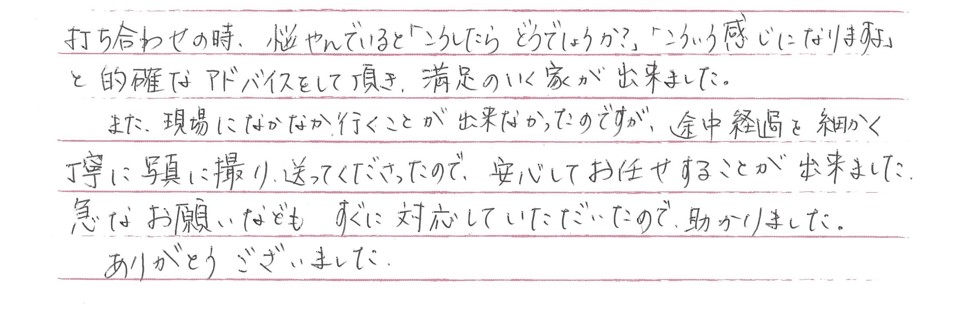 打ち合わせの時、悩やんでいると「こうしたら どうでしょうか?」「こういう感じになりますよ」
と的確なアドバイスをして頂き、満足のいく家が出来ました。
また、現場になかなか行くことが出来なかったのですが、途中経過を細かく
丁寧に写真に撮り、送ってくださったので、安心してお任せすることが出来ました。
急なお願いなども すぐに対応していただいたので、助かりました。
ありがとうございました。